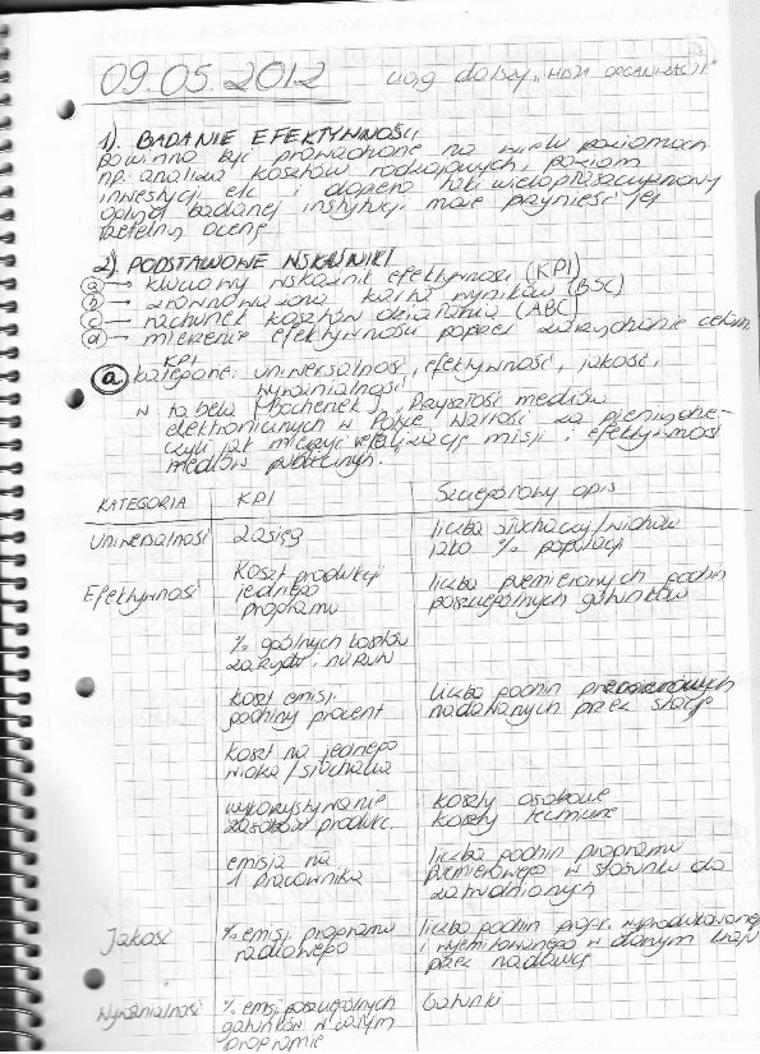 09.05.2012 ciąg dalszy „MISJI ORGANIZACJI"
1). BADANIE EFEKTYWNOŚCI
powinno być prowadzone na wielu poziomach
np. analiza kosztów rodzajowych, poziom
inwestycji etc i dopiero taki wielopłaszczyznowy
ogląd badanej instytucji może przynieść jej
rzetelną ocenę
2). PODSTAWOWE WSKAŹNIKI
a → kluczowy wskaźnik efektywności (KPI)
b → zrównoważona karta wyników (BSC)
c → rachunek kosztów działania (ABC)
d → mierzenie efektywności poprzez zarządzanie celami
KPI
a kategorie: uniwersalność, efektywność, jakość,
wyróżnialność
w tabela Mochenek J „Przyszłość mediów
elektronicznych w Polsce. Wartość za pieniądze –
czyli jak mierzyć realizację misji i efektywność
mediów publicznych."
KATEGORIA KPI Szczegółowy opis
Uniwersalność zasięg liczba słuchaczy/widzów
jako % populacji
Efektywność koszt produkcji
jednego
programu
liczba premierowych godzin
poszczególnych gatunków
% ogólnych kosztów
zarząd. i narzut
koszt emisji
godziny procent
liczba godzin
nadawanych przez stację
koszt na jednego
widza/słuchacza
wykorzystywanie
zasobów produkc.
koszty osobowe
koszty techniczne
emisja na
1 pracownika
liczba godzin programu
premierowego w stosunku do
zatrudnionych
Jakość % emisji programu
radiowego
liczba godzin progr. wyprodukowanego
i wyemitowanego w danym kraju
przez nadawcę
Wyróżnialność % emisji poszczególnych
gatunków w całym
programie
Gatunki